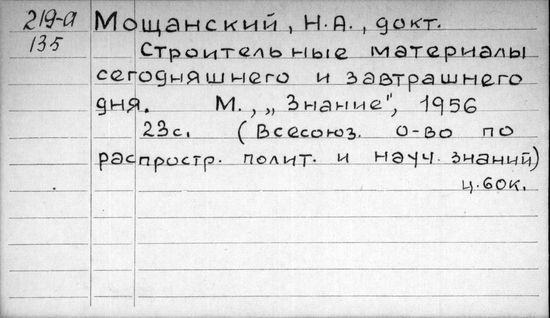 219-а Мощанский, Н.А., докт.
135 Строительные материалы
сегодняшнего и завтрашнего
дня. М., „Знание", 1956
23с. (Всесоюз. о-во по
распростр. полит. и науч. знаний)
ц. 60к.